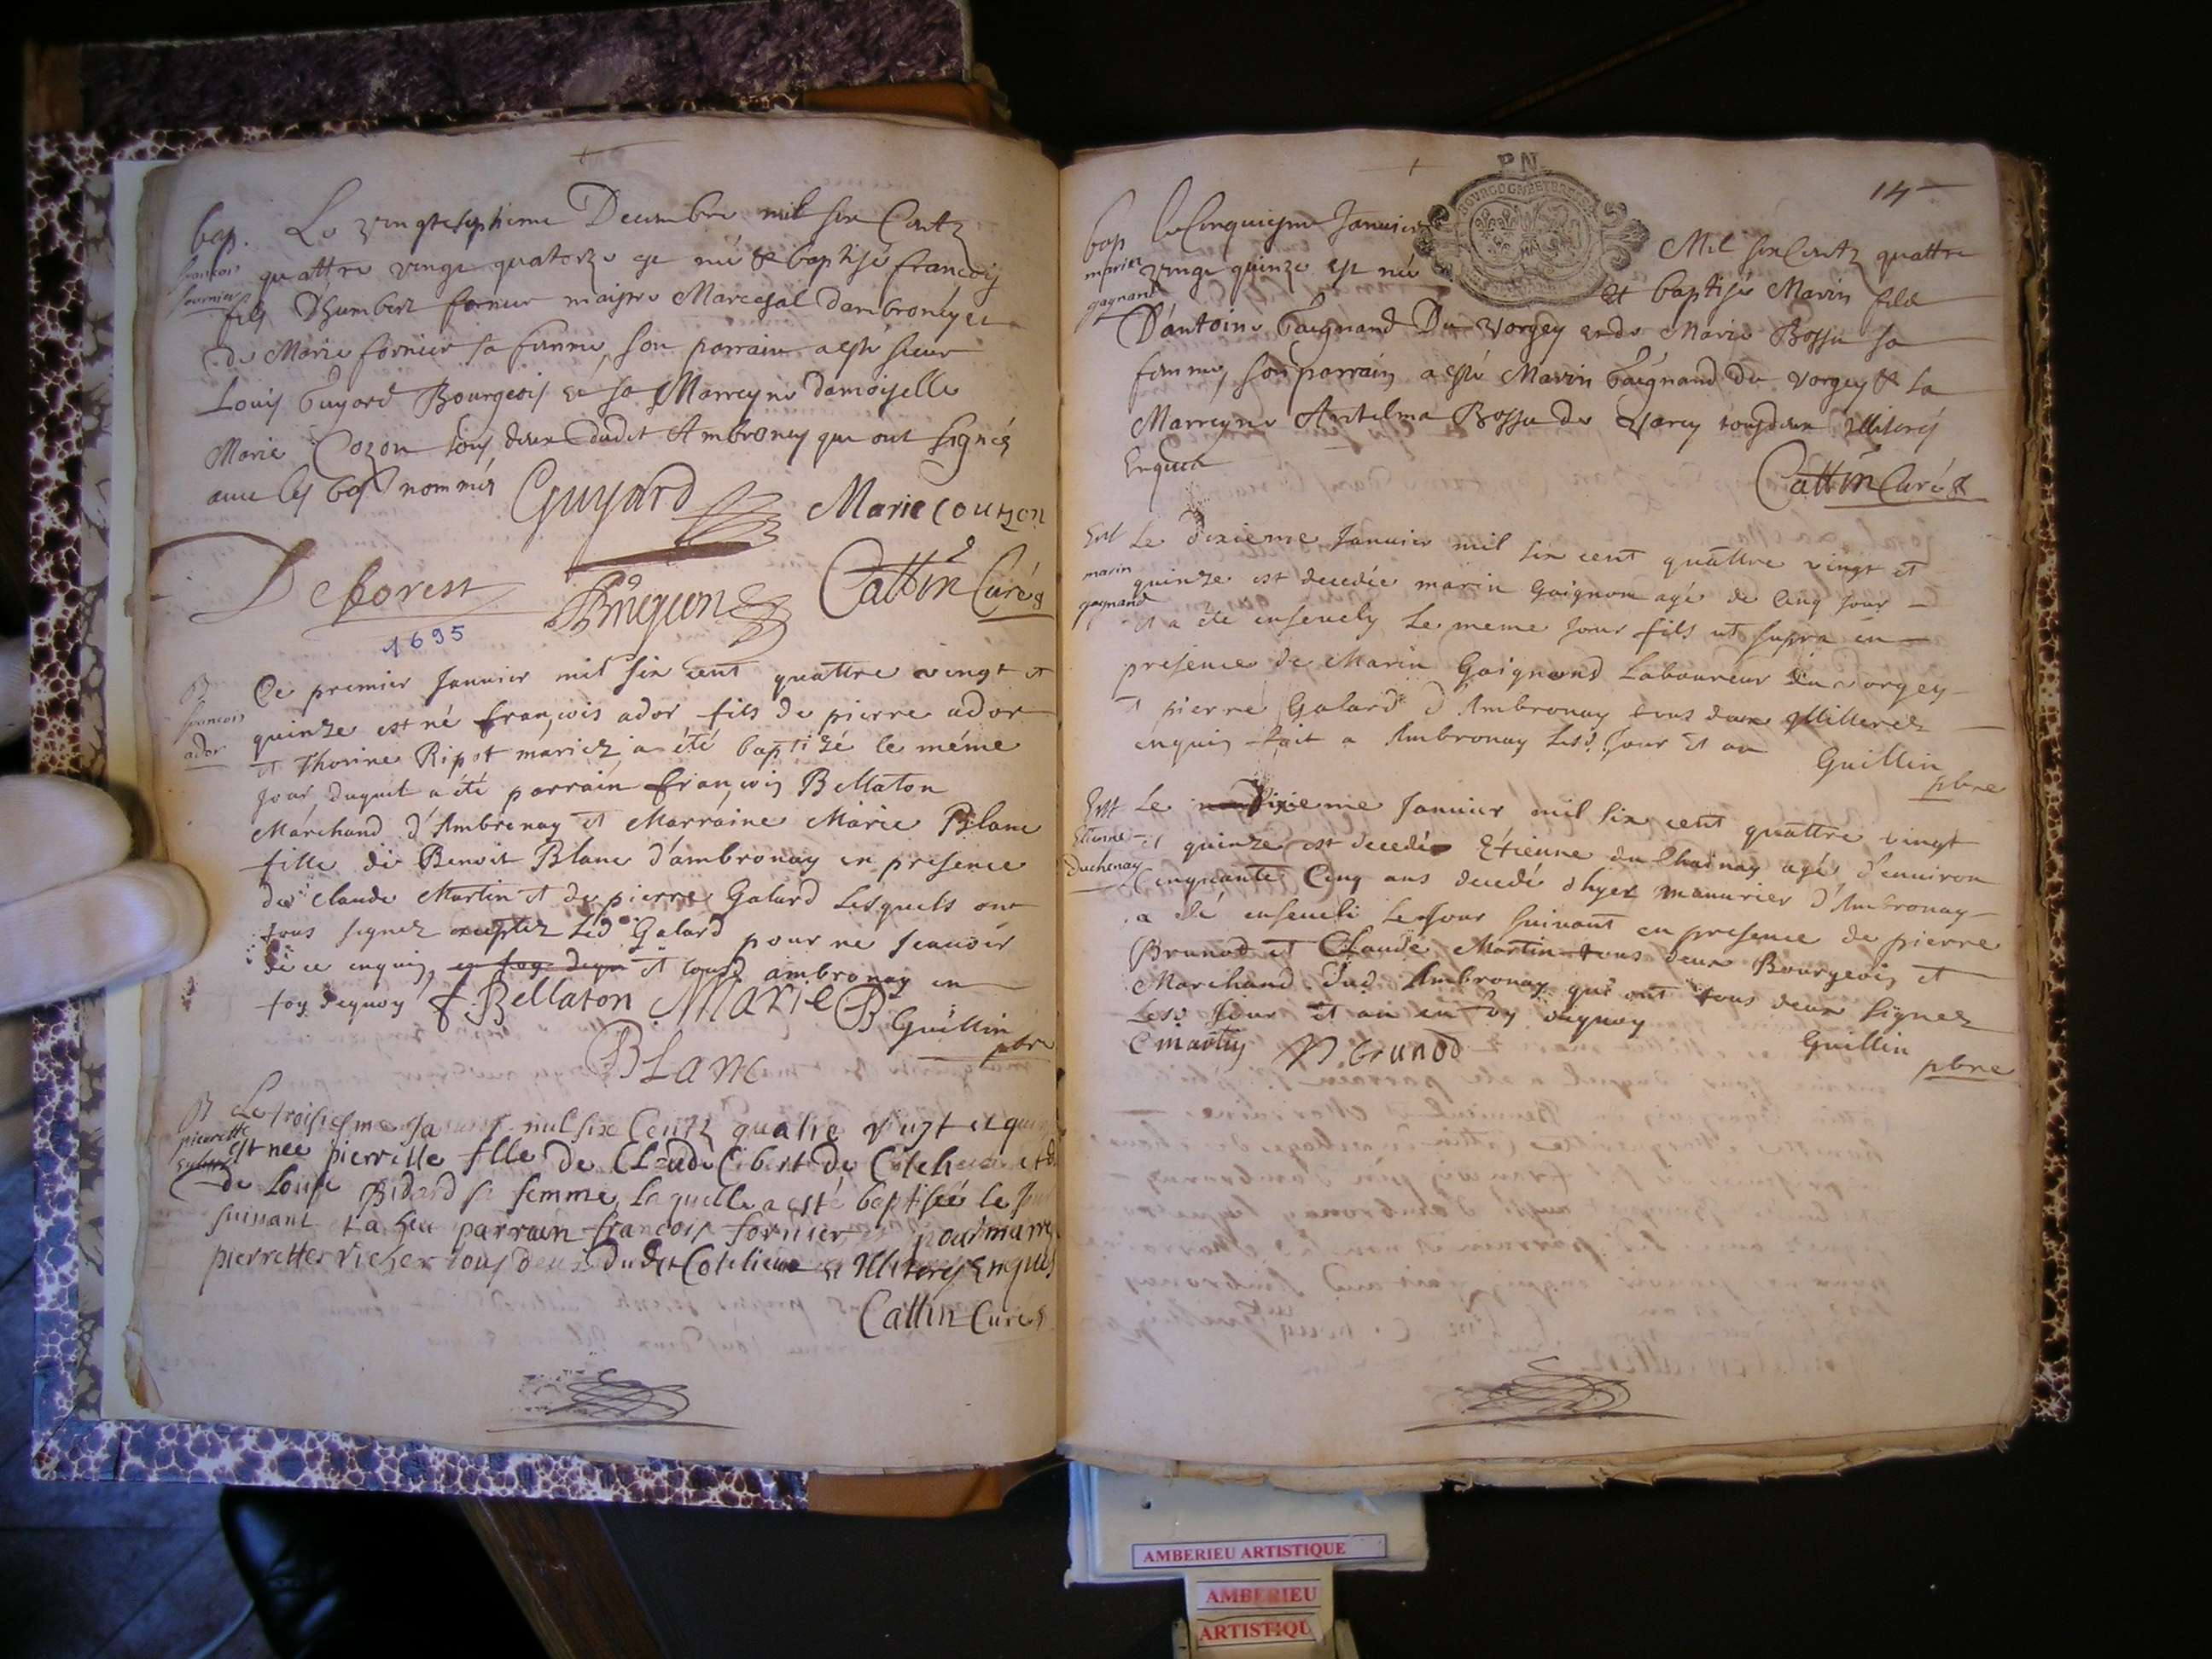 bap. Le vingtesepthieme Decembre mil six Centz
francois fournier
quattre vinge quatorze est né & baptisé francois
fils D'humbert fornier maistre Marechal dambronay et
de Marie fornier sa femme, son parrain a esté sieur
Louis Guyard Bourgeois et sa Marreyne damoiselle
Marie Cozon tous deux dudit Ambronay qui ont signés
avec les bas nommés Guyard Marie couzon
Deforest Cattin Curé
1695
B
francois
ador
Ce premier Januier mil six cent quattre vingt et
quinze est né françois ador fils de pierre ador
et Thorine Ripot mariez a été baptizé le méme
jour, duquel a été parrain françois Bellaton
Marchand d'Ambronay et Marraine Marie Blanc
fille de Benoit Blanc d'ambronay en presence
de Claude Martin et de pierre Galard Lesquels ont
tous signez exceptez Led. Galard pour ne scauoir
de ce enquis, et ambronay en
foy dequoy f. Bellaton Marie B
BLanc
Guillin pbre
B
pierrette
Le troisiesme Januier mil six Centz quatre vingt et quin
est nee pierrette fille de Claude Cibert de Cotelieue et
de Louise Bidard sa femme, laquelle a esté baptisée le jour
suiuant et a heu parrain francois fornier pour marre
pierrette Vicher tous deux dudit Cotelieue et Illiterés Enquis
Cattin Curé
14
P.N.
BOURGOGNE ET BRESSE
bap
marin
gagnand
le Cinquiesme Januier Mil six Centz quattre
vinge quinze est né et baptisé Marin fils
D'antoine Gaignand Du Vorgey et de Marie Bossu sa
femme, son parrain a esté Marin Gaignand du Vorgey & sa
Marreyne Antelma Bossu de Varey tous deux Illiterés
Enquis
Cattin Curé
Ent
marin
gagnand
Le dixieme Januier mil six cent quattre vingt et
quinze est decedée marin Gaignon agé de Cinq jour
et a été enseuely Le meme jour fils ut supra en
presence de Marin Gaignand Laboureur du Vorgey
et pierre Galard d'Ambronay tous deux Illiterez
enquis fait a Ambronay Lesd. Jour et an
Guillin pbre
Ent
Etienne
Duchenay
Le dixieme Januier mil six cent quattre vingt
et quinze est decedé Etienne du Chainay agé d'enuiron
Cinquante Cinq ans decedé d'hyer manurier d'Ambronay
a été enseueli Le Jour suiuant en presence de pierre
Brunod et Claude Martin tous deux Bourgeois et
Marchand dud. Ambronay qui ont tous deux signez
Lesd. Jour et an en foy dequoy
C martin P. brunod
Guillin pbre
AMBERIEU ARTISTIQUE
AMBERIEU
ARTISTIQU